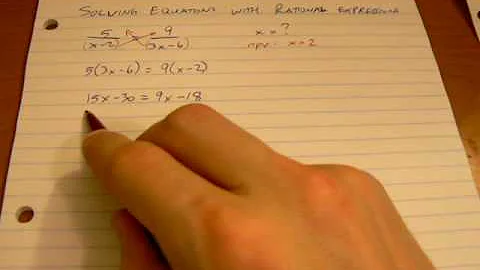 SOLVING EQUATIONS WITH RATIONAL EXPRESSIONS
5/(x-2) = 9/(3x-6) x = ?
npv: x=2
5(3x-6) = 9(x-2)
15x-30 = 9x-18